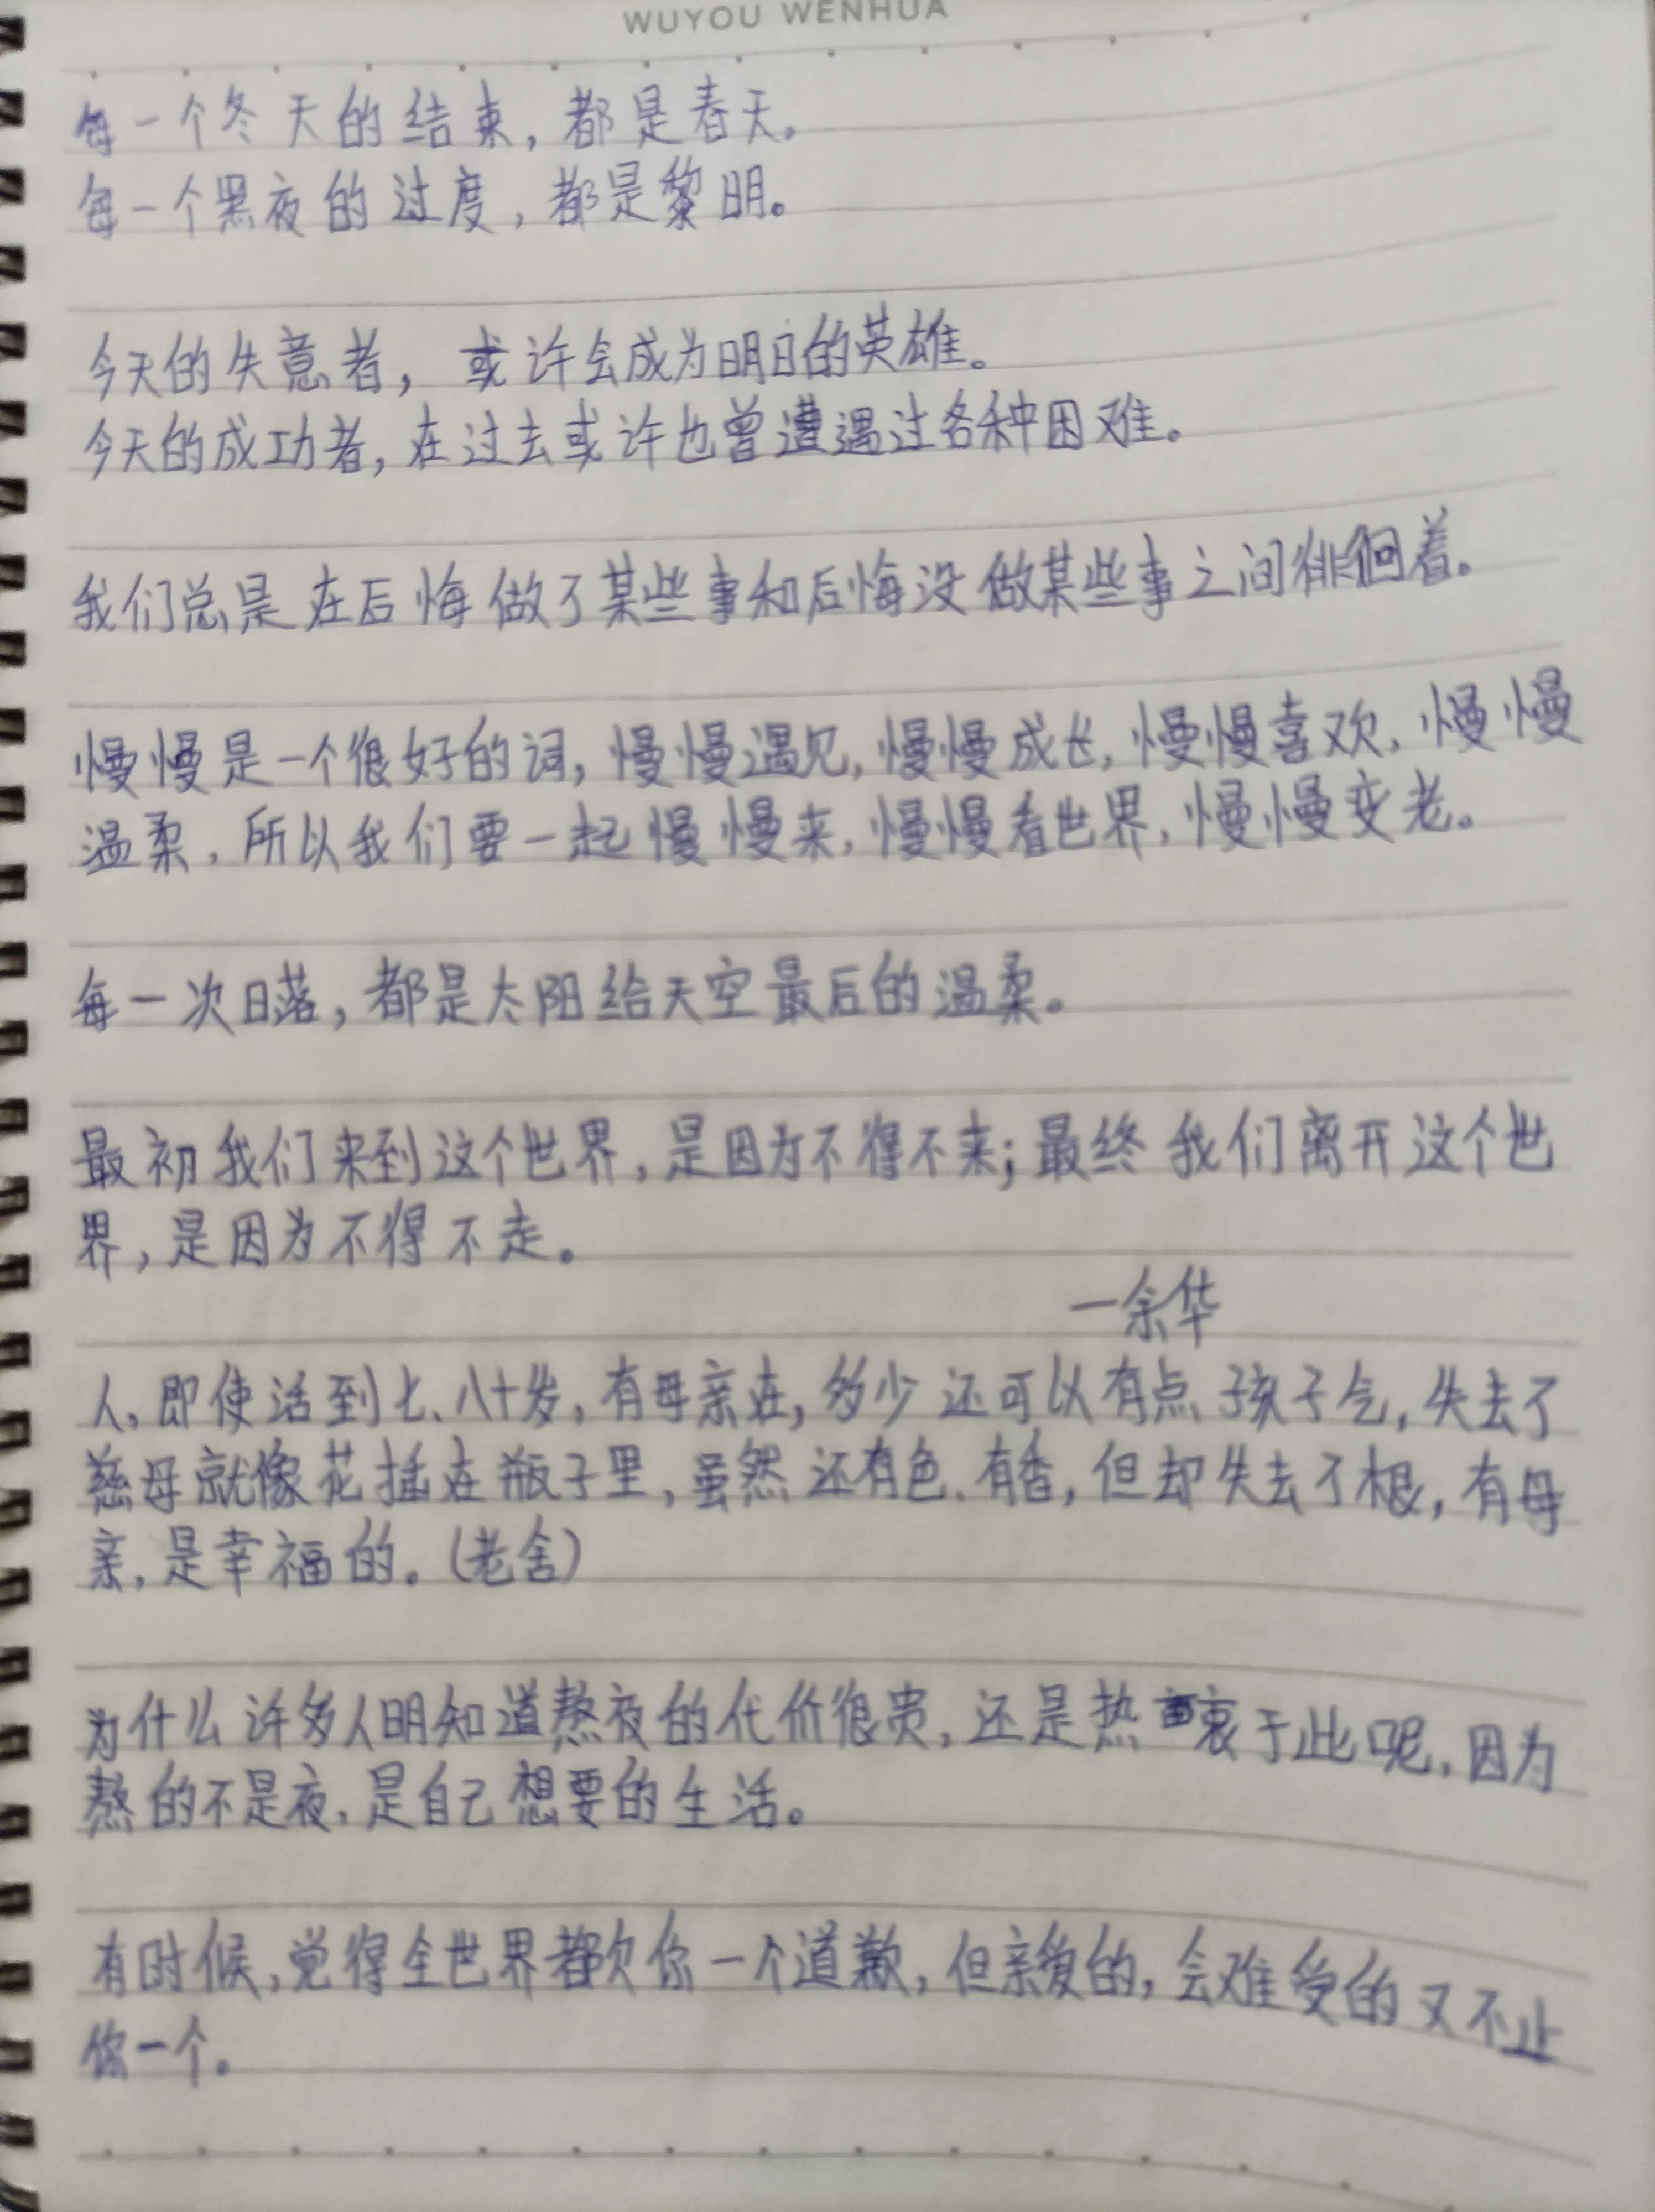 WUYOU WENHUA
每一个冬天的结束，都是春天。
每一个黑夜的过度，都是黎明。
今天的失意者，或许会成为明日的英雄。
今天的成功者，在过去或许也曾遭遇过各种困难。
我们总是在后悔做了某些事和后悔没做某些事之间徘徊着。
慢慢是一个很好的词，慢慢遇见，慢慢成长，慢慢喜欢，慢慢
温柔，所以我们要一起慢慢来，慢慢看世界，慢慢变老。
每一次日落，都是太阳给天空最后的温柔。
最初我们来到这个世界，是因为不得不来；最终我们离开这个世
界，是因为不得不走。
—余华
人，即使活到七、八十岁，有母亲在，多少还可以有点孩子气，失去了
慈母就像花插在瓶子里，虽然还有色、有香，但却失去了根，有母
亲，是幸福的。（老舍）
为什么许多人明知道熬夜的代价很贵，还是热衷于此呢，因为
熬的不是夜，是自己想要的生活。
有时候，觉得全世界都欠你一个道歉，但亲爱的，会难受的又不止
你一个。